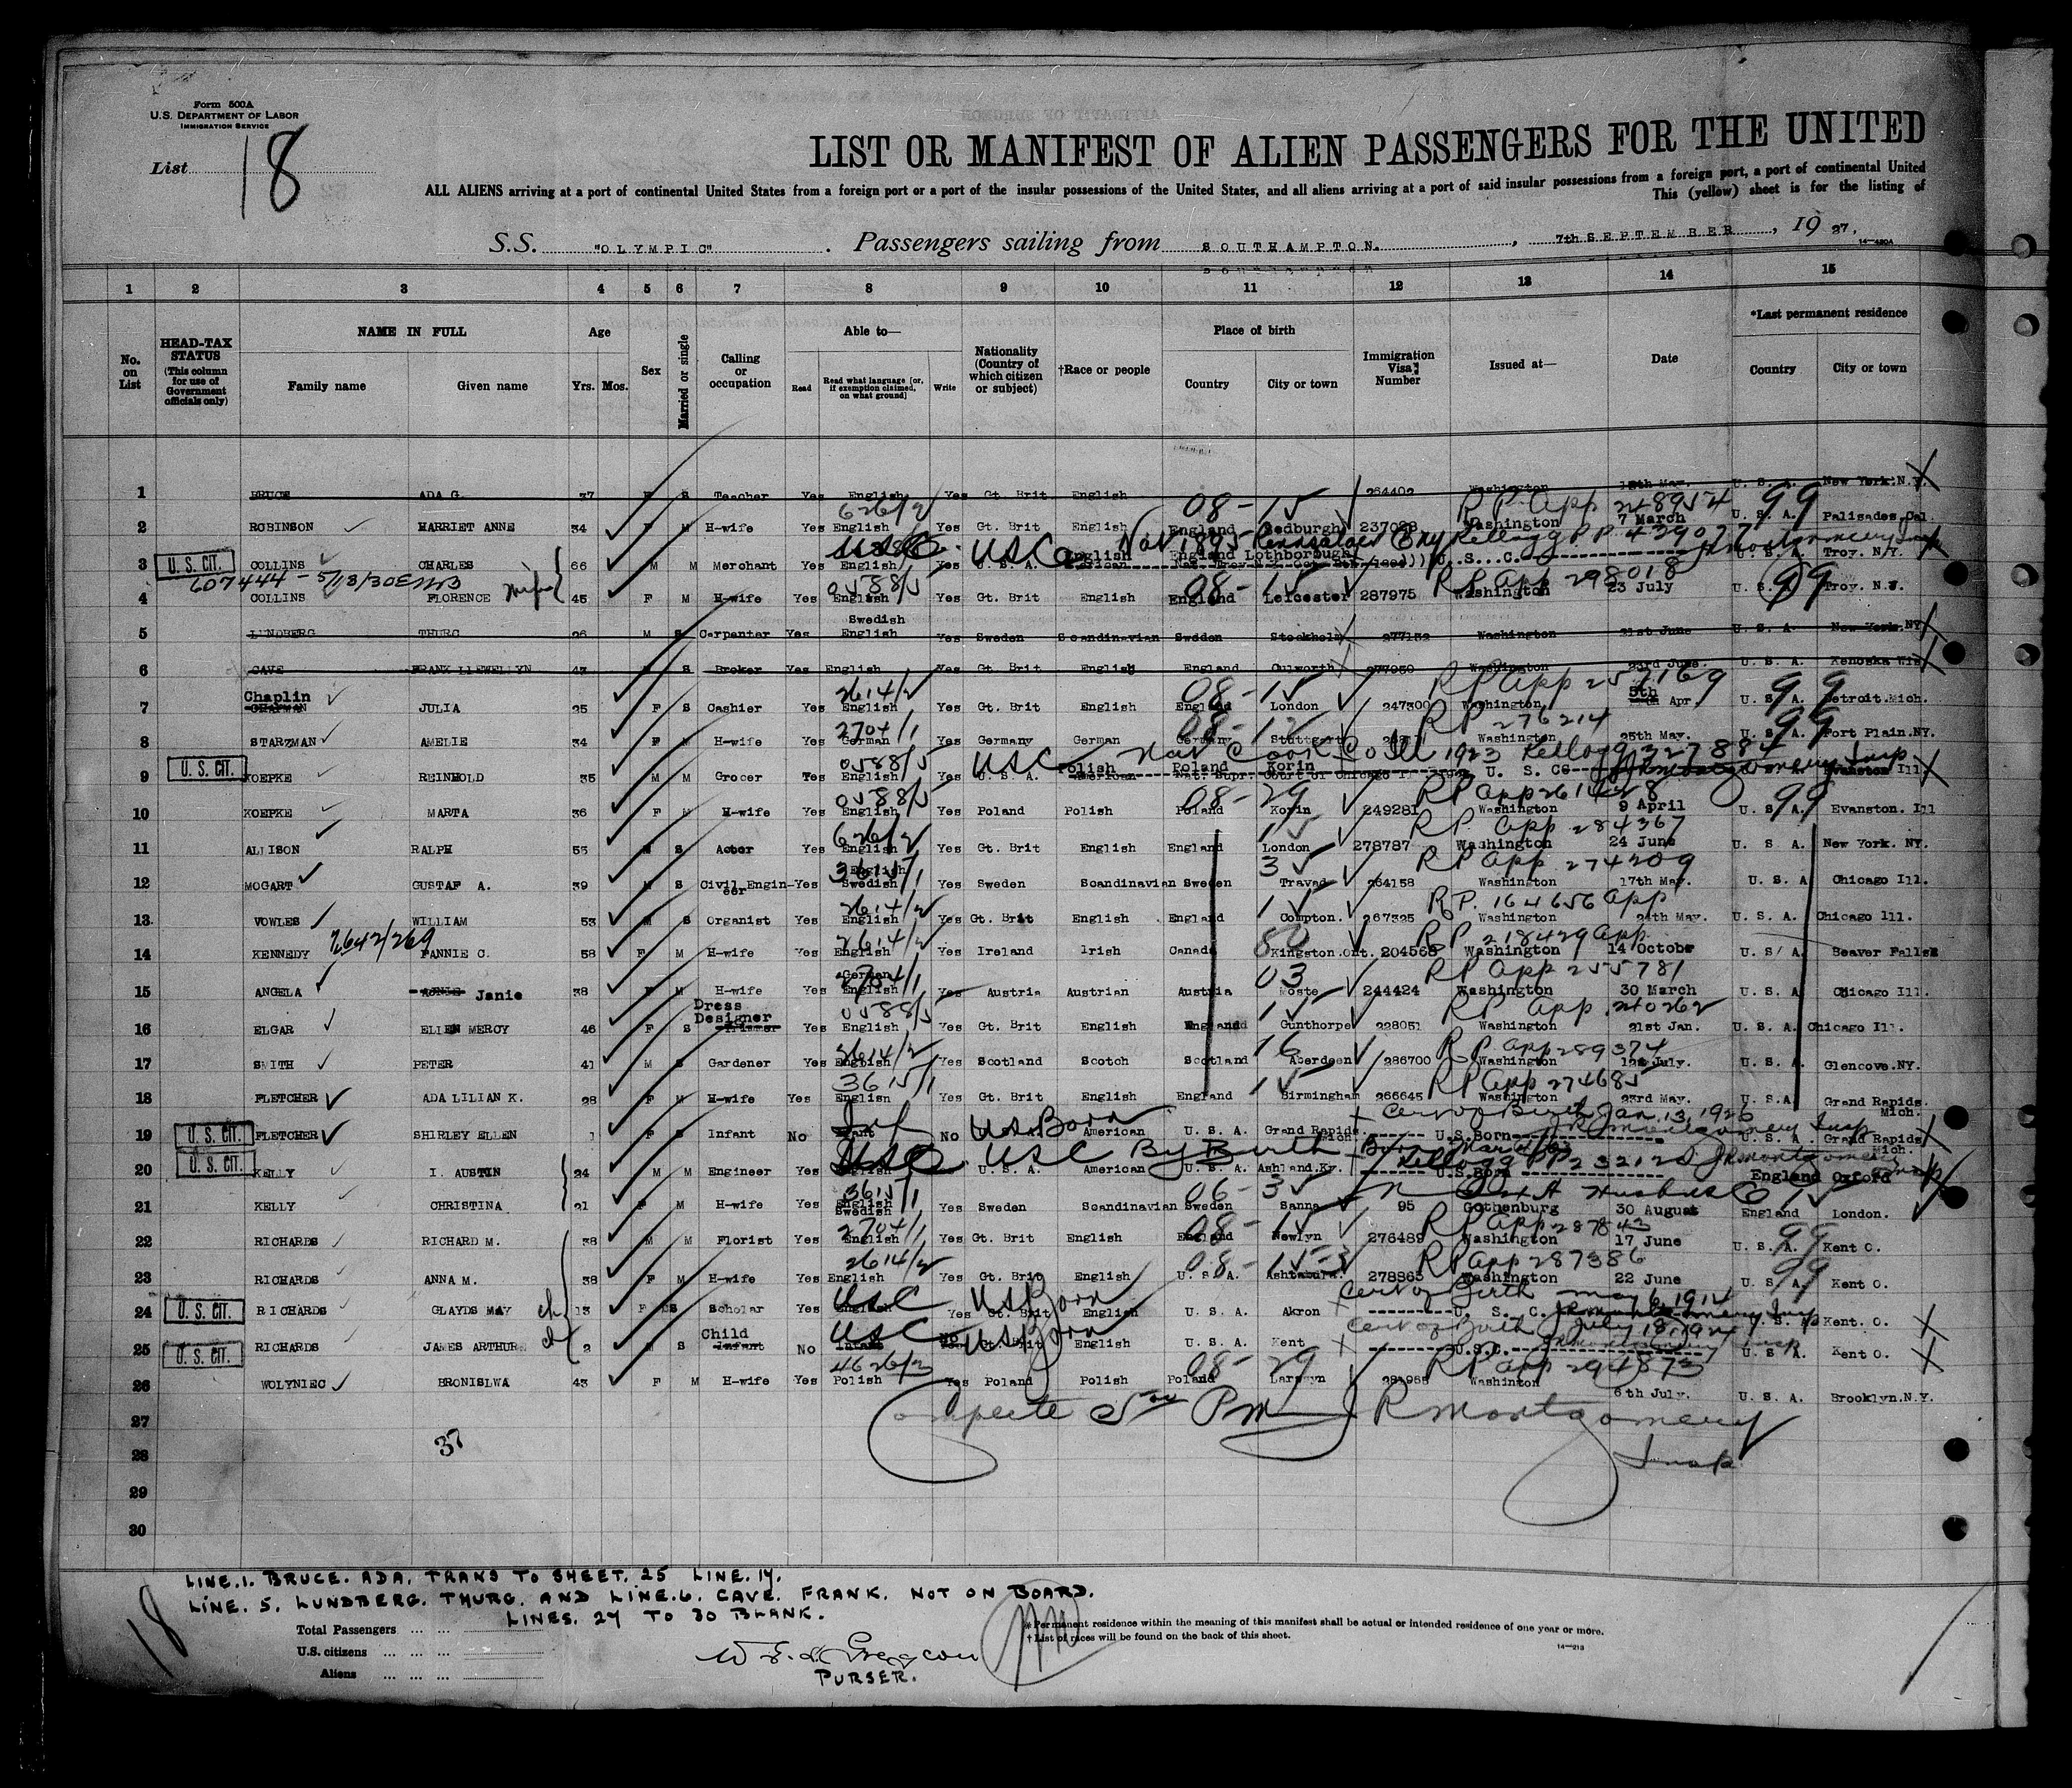 Form 500A
U.S. DEPARTMENT OF LABOR
IMMIGRATION SERVICE
List 18
LIST OR MANIFEST OF ALIEN PASSENGERS FOR THE UNITED
ALL ALIENS arriving at a port of continental United States from a foreign port or a port of the insular possessions of the United States, and all aliens arriving at a port of said insular possessions from a foreign port, a port of continental United
This (yellow) sheet is for the listing of
S.S. "OLYMPIC" . Passengers sailing from SOUTHAMPTON. , 7th SEPTEMBER , 19 27.
14—420A
1 2 3 4 5 6 7 8 9 10 11 12 13 14 15
No. on List
HEAD-TAX STATUS (This column for use of Government officials only)
NAME IN FULL
Family name Given name
Age
Yrs. Mos.
Sex
Married or single
Calling or occupation
Able to—
Read Read what language [or, if exemption claimed, on what ground] Write
Nationality (Country of which citizen or subject)
†Race or people
Place of birth
Country City or town
Immigration Visa Number
Issued at—
Date
*Last permanent residence
Country City or town
1 BRUCE ADA G. 37 F S Teacher Yes English Yes Gt. Brit English 264402 Washington May. U. S. A. New York.N.Y.
626/2 08-15 R.P. App 248954 99
2 ROBINSON HARRIET ANNE 34 F M H-wife Yes English Yes Gt. Brit English England Sedburgh 237028 Washington 7 March U. S. A. Palisades.Cal.
USC Nat 1895 Kellogg PP 439077
U. S. CIT.
3 COLLINS CHARLES 66 M M Merchant Yes English Yes U. S. A. English England Lothborough U.S.C. U S A Troy. N.Y.
607444 - 5/13/30 wife 0588/5 08-15 R P App 298018 99
4 COLLINS FLORENCE 45 F M H-wife Yes English Yes Gt. Brit English England Leicester 287975 Washington 23 July U. S. A Troy. N.Y.
Swedish
5 LUNDBERG THURG 26 M S Carpenter Yes English Yes Sweden Scandinavian Sweden Stockholm 277132 Washington 21st June U. S. A New York.NY
6 CAVE FRANK LLEWELLYN 43 M S Broker Yes English Yes Gt. Brit English England Culworth Washington 23rd June. U. S. A. Kenoska Wis
Chaplin 2614/2 08-15 R P App 257169 99
7 CHAPMAN JULIA 25 F S Cashier Yes English Yes Gt. Brit English England London 247300 Washington 5th Apr U. S A Detroit.Mich.
2704/1 R P 276214 99
8 STARZMAN AMELIE 34 F M H-wife Yes German Yes Germany German Germany Stuttgart Washington 25th May. U. S. A. Fort Plain.NY.
0588/5 USC Nat Cook Co Ill 1923 Kellogg 327884
U. S. CIT.
9 KOEPKE REINHOLD 35 M M Grocer Yes English Yes U. S. A. Polish American Poland Korin U. S. C Evanston Ill
0588/5 08-29 R P App 261428 99
10 KOEPKE MARTA 36 F M H-wife Yes English Yes Poland Polish Poland Korin 249281 Washington 9 April U. S A Evanston. Ill
626/2 15 R P. App 284367
11 ALLISON RALPH 55 M S Actor Yes English Yes Gt. Brit English England London 278787 Washington 24 June U. S A New York. NY.
3615/1 35 R P App 274209
12 MOGART GUSTAF A. 39 M S Civil Engineer Yes English Swedish Yes Sweden Scandinavian Sweden Travad 264158 Washington 17th May. U. S. A Chicago Ill.
2614/2 15 R.P. 164656 App
13. VOWLES WILLIAM 53 M S Organist Yes English Yes Gt. Brit English England Compton. 267325 Washington 24th May. U. S. A. Chicago Ill.
2642/269 2614/2 80 R P 218429 App
14 KENNEDY FANNIE C. 58 F M H-wife Yes English Yes Ireland Irish Canada Kingston.Ont. 204568 Washington 14 October U. S/ A. Beaver Falls
2704/1 03 R P App 255781
15 ANGELA Janie 38 F M H-wife Yes German English Yes Austria Austrian Austria Moste 244424 Washington 30 March U. S. A Chicago Ill.
0588/5 15 R P App 240262
16 ELGAR ELLEN MERCY 46 F S Dress Designer Yes English Yes Gt. Brit English England Gunthorpe 228051 Washington 21st Jan. U. S. A Chicago Ill.
2614/2 16 R P App 289374
17 SMITH PETER 41 M S Gardener Yes English Yes Scotland Scotch Scotland Aberdeen 286700 Washington 12th July. U. S. A. Glencove.NY.
3615/1 15 R P App 274685
18 FLETCHER ADA LILIAN K. 28 F M H-wife Yes English Yes Gt. Brit English England Birmingham 266645 Washington 23rd May. U. S.A Grand Rapids. Mich.
Inf US Born Cert of Birth Jan 13, 1926
U. S. CIT.
19 FLETCHER SHIRLEY ELLEN 1 F S Infant No Infant No American U. S. A. Grand Rapids. Mich. U.S.Born U. S. A Grand Rapids Mich.
USC USC By Birth
U. S. CIT.
20 KELLY I. AUSTIN 24 M M Engineer Yes English U. S. A. American U. S. A. Ashland.Ky. U.S.Born England Oxford
3615/1 06-35
21 KELLY CHRISTINA 21 F M H-wife Yes English Swedish Yes Sweden Scandinavian Sweden Sanna 95 Gothenburg 30 August England London.
2704/1 08-15 R P App 287843 99
22 RICHARDS RICHARD M. 38 M M Florist Yes English Yes Gt. Brit English England Newlyn 276489 Washington 17 June U. S. A. Kent O.
2614/2 08-15 R P App 287386 99
23 RICHARDS ANNA M. 38 F M H-wife Yes English Yes Gt. Brit English U. S. A. Ashtabula. 278865 Washington 22 June U S A Kent O.
USC US Born Cert of Birth May 6, 1914
U. S. CIT.
24 RICHARDS GLAYDS MAY ch 13 F S Scholar Yes English Yes Gt. Brit English U. S. A. Akron U. S. C. U. S. A Kent. O.
USC US Born Cert of Birth July 18, 1924
U. S. CIT.
25 RICHARDS JAMES ARTHUR ch 2 M S Child Infant No Infant Gt. Brit English U. S. A. Kent U.S.C. U S A. Kent O.
4626/3 08-29 R P App 294873
26 WOLYNIEC BRONISLWA 43 F M H-wife Yes Polish Yes Poland Polish Poland Washinton 6th July. U. S. A. Brooklyn.N.Y.
27 Complete PM J R Montgomery
28 37 Insp
29
30
LINE.1. BRUCE. ADA. TRANS TO SHEET. 25 LINE. 14.
LINE. 5. LUNDBERG. THURG. AND LINE.6. CAVE. FRANK. NOT ON BOARD.
LINES. 27 TO 30 BLANK.
18
Total Passengers
U.S. citizens
Aliens
PURSER.
* Permanent residence within the meaning of this manifest shall be actual or intended residence of one year or more.
† List of races will be found on the back of this sheet.
14—213